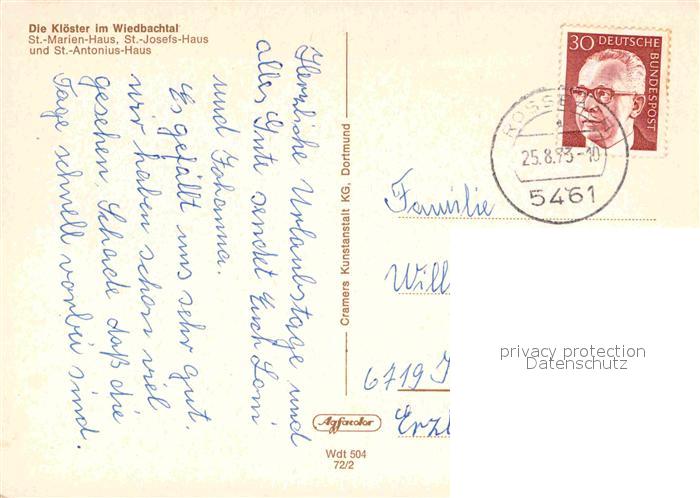 Die Klöster im Wiedbachtal
St.-Marien-Haus, St.-Josefs-Haus
und St.-Antonius-Haus
Herzliche Urlaubstage und
alles Gute sendet Euch Loni
und Johanna.
Es gefällt uns sehr gut.
wir haben schon viel
gesehen. Schade daß die
Tage schnell vorbei sind.
Cramers Kunstanstalt KG, Dortmund
Agfacolor
Wdt 504
72/2
30 DEUTSCHE
BUNDESPOST
25.8.73-10
5461
Familie
Will
6719
Erzb
privacy protection
Datenschutz